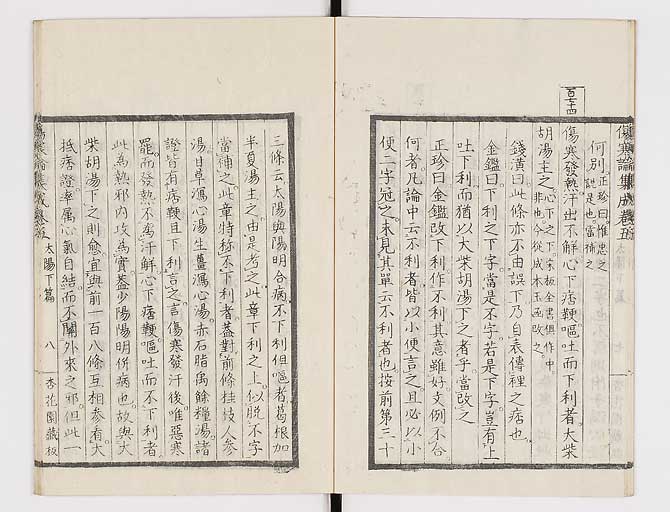 百七十四
傷寒論集成卷五
太陽下篇
何別正珍曰惟忠之說是也當補之
傷寒發熱汗出不解心下痞鞕嘔吐而下利者大柴
胡湯主之心下之下宋板全書俱作中非也今從成本玉函改之
錢潢曰此條亦不由誤下乃自表傳裡之痞也
金鑑曰下利之下字當是不字若是下字豈有上
吐下利而猶以大柴胡湯下之者乎當改之
正珍曰金鑑改下利作不利其意雖好文例不合
何者凡論中云不利者皆以小便言之且必以小
便二字冠之未見其單云不利者也按前第三十
三條云太陽與陽明合病不下利但嘔者葛根加
半夏湯主之由是考之此章下利之上似脫不字
當補之此章特稱不下利者蓋對前條桂枝人參
湯甘草瀉心湯生薑瀉心湯赤石脂禹餘糧湯諸
證皆有痞鞕且下利言之言傷寒發汗後唯惡寒
罷而發熱不爲汗解心下痞鞕嘔吐而不下利者
此爲熱邪內攻爲實蓋少陽陽明併病也故與大
柴胡湯下之則愈宜與前一百八條互相參看大
抵痞證率属心氣自結而不關外來之邪但此一
傷寒論集成卷五 太陽下篇 八 杏花園藏板